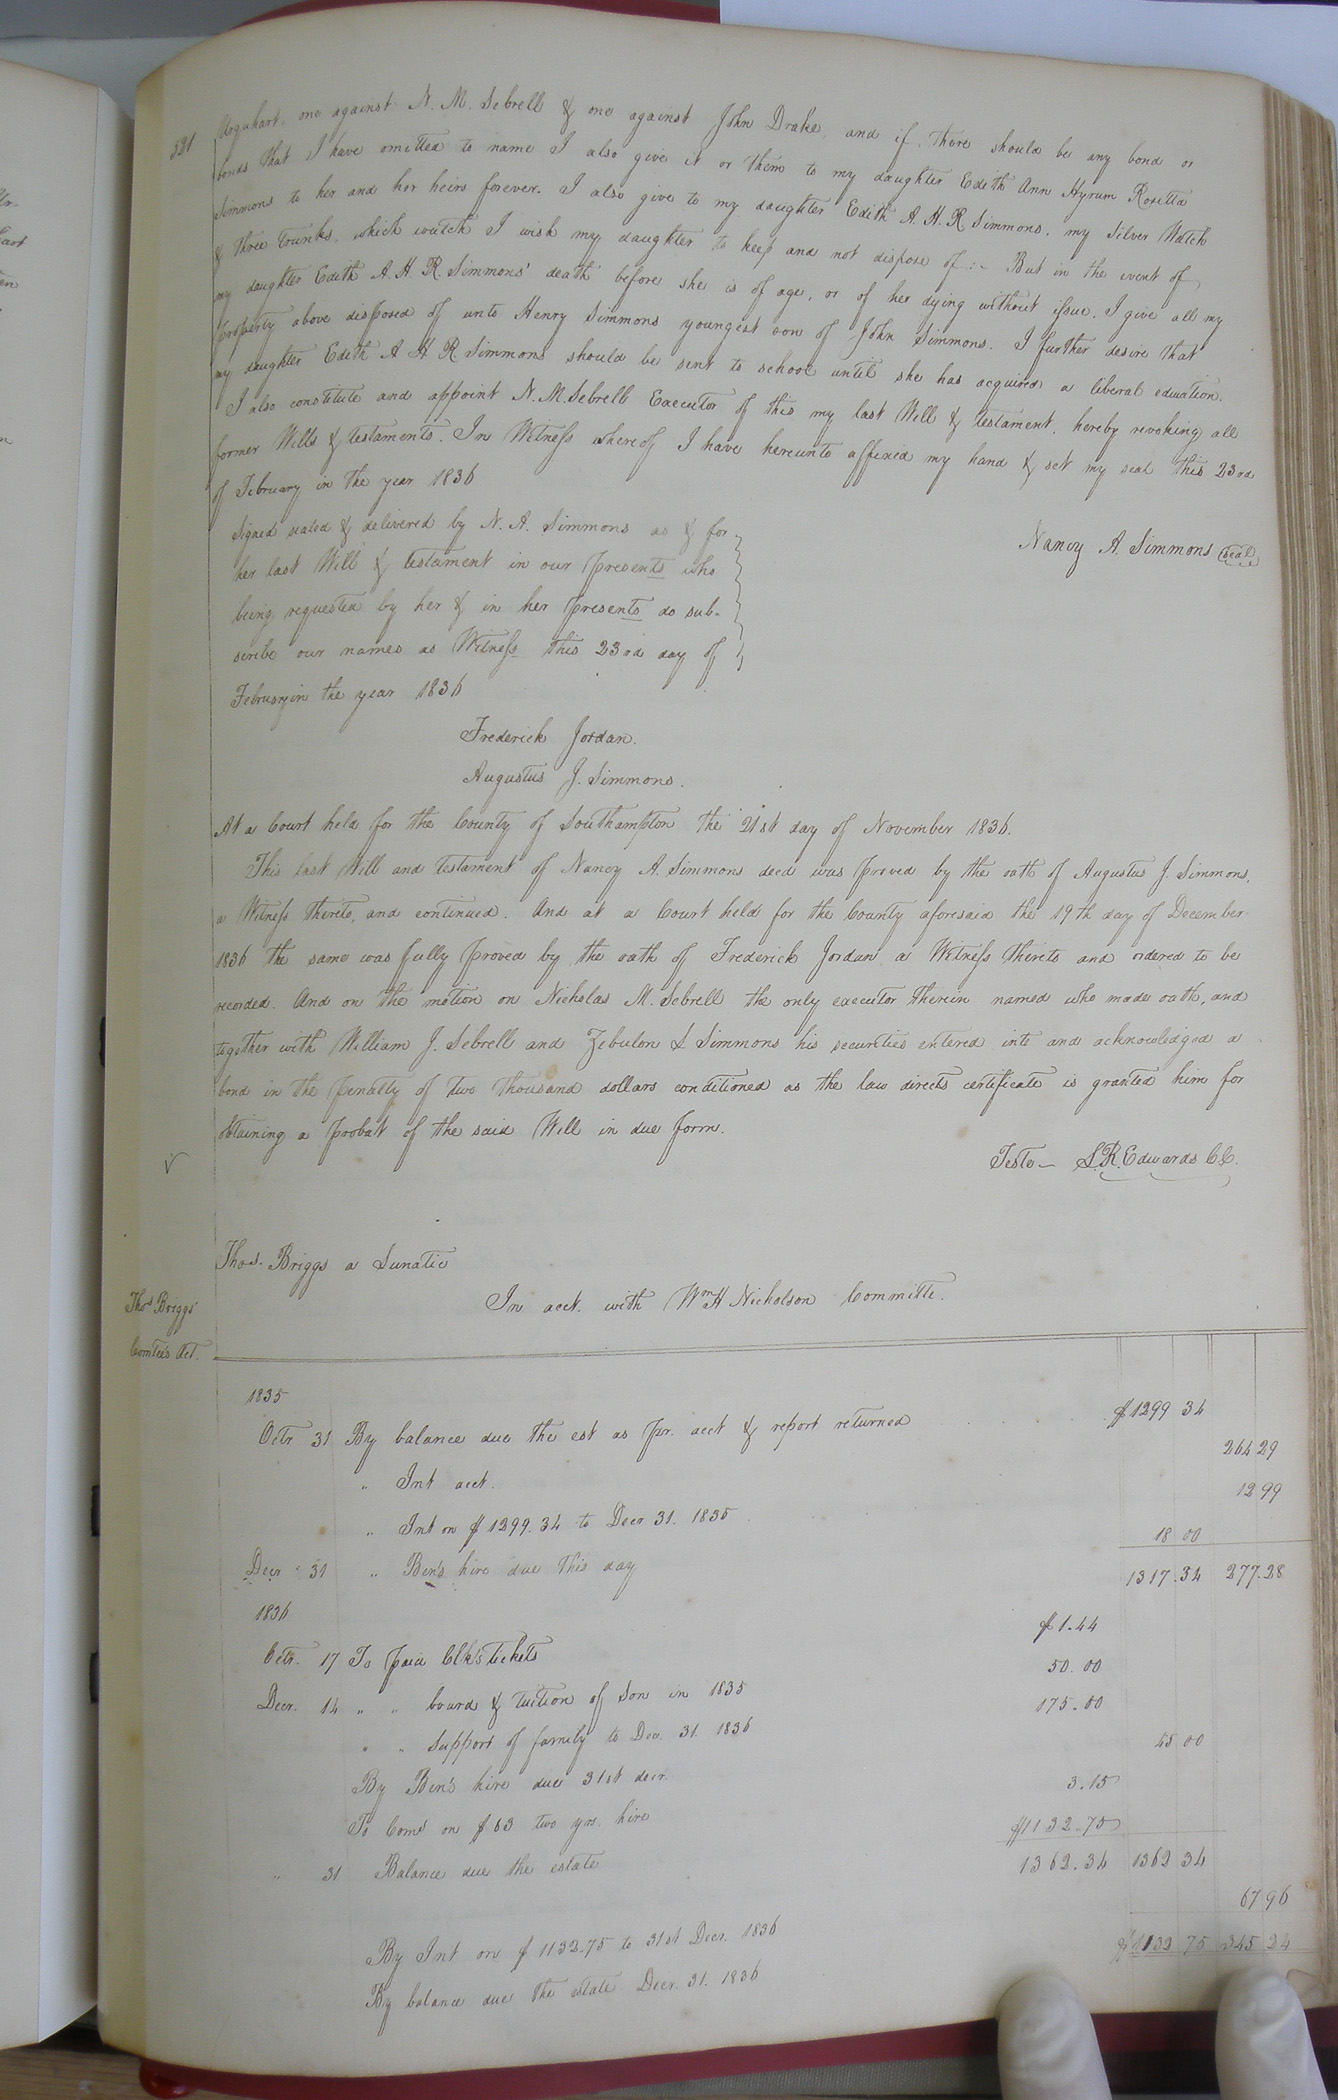 531
Urquhart, one against N. M. Sebrell & one against John Drake, and if there should be any bond or
bonds that I have omitted to name I also give it or them to my daughter Edith Ann Hyrum Rosetta
Simmons to her and her heirs forever. I also give to my daughter Edith A. H. R Simmons, my Silver Watch
& three Trunks, which watch I wish my daughter to keep and not dispose of :- But in the event of
my daughter Edith A. H R. Simmons' death before she is of age, or of her dying without issue, I give all my
property above disposed of unto Henry Simmons youngest son of John Simmons. I further desire that
my daughter Edith A H R Simmons should be sent to school until she has acquired a liberal eduation.
I also constitute and appoint N. M. Sebrell Executor of this my last Will & testament, hereby revoking all
former Wills & testaments. In Witness whereof I have hereunto affixed my hand & set my seal this 23rd
of February in the year 1836
Nancy A. Simmons (seal)
Signed sealed & delivered by N. A. Simmons as & for
her last Will & testament in our presents who
being requested by her & in her presents do sub-
scribe our names as Witness this 23rd day of
February in the year 1836
Frederick Jordan.
Augustus J. Simmons.
At a Court held for the County of Southampton the 21st day of November 1836.
This last Will and testament of Nancy A. Simmons decd was proved by the oath of Augustus J. Simmons,
a Witness thereto, and continued. And at a Court held for the County aforesaid the 19th day of December
1836 the same was fully proved by the oath of Frederick Jordan a Witness thereto and ordered to be
recorded. And on the motion on Nicholas M. Sebrell the only executor therein named who made oath, and
together with William J. Sebrell and Zebulon S Simmons his securities entered into and acknowledged a
bond in the penalty of two thousand dollars conditioned as the law directs certificate is granted him for
obtaining a probat of the said Will in due form.
Teste- S. R. Edwards CC.
Thos. Briggs a Lunatic
In acct. with Wm H Nicholson Committe.
Thos Briggs'
Comtee's Act.
1835
Octr 31 By balance due the est as pr. acct & report returned $1299 34
" Int acct. 264 29
" Int on $1299.34 to Decr 31. 1835 12 99
Decr 31 " Ben's hire due this day 18 00
1317.34 277.28
1836
Octr. 17 To paid Clk's Tickets $1.44
Decr. 14 " " board & tuition of Son in 1835 50.00
" " support of family to Dec. 31. 1836 175.00
By Ben's hire due 31st decr. 45 00
To Coms on $63 two yrs. hire 3.15
" 31 Balance due the estate $1132.75
1362.34 1362 34
By Int on $1132.75 to 31st Decr. 1836 67 96
By balance due the estate Decr. 31. 1836 $1132 75 345 24